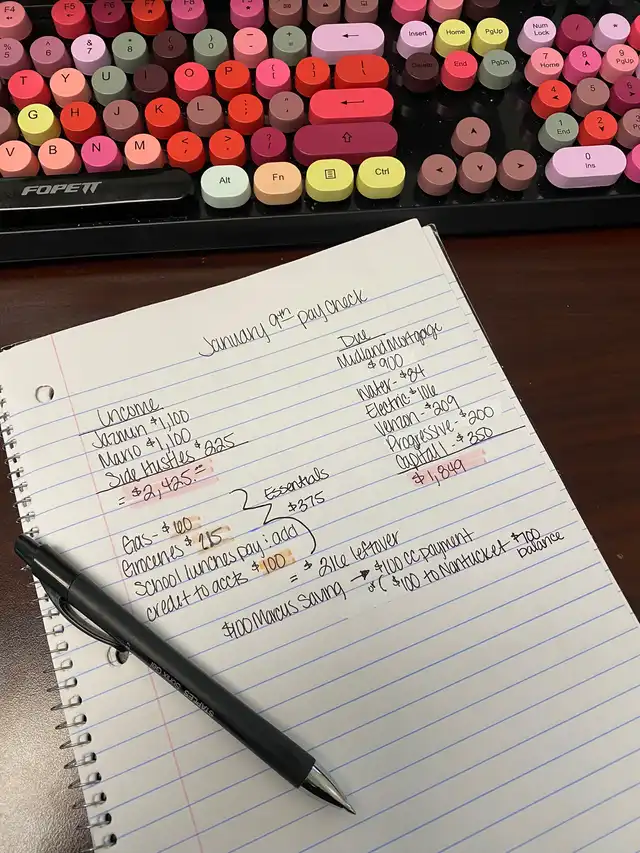 F5 F6 F7 F8
% 5 ^ 6 & 7 * 8 ( 9 ) 0 - + = ← Insert Home PgUp Num Lock / *
T Y U I O P { [ } ] | \ Delete End PgDn 7 Home 8 9 PgUp
G H J K L : ; " ' ← 4 5 6
V B N M < , > . ? / ⇧ 1 End 2 3
Alt Fn Ctrl 0 Ins
FOPETT
January 9th paycheck
Income
Jazmin $1,100
Mario $1,100
Side Hustles $225
= $2,425.00
Due
Midland Mortgage
$900
Water- $84
Electric $106
Verizon - $209
Progressive- $200
Capital 1 - $350
$1,849
Gas- $60
Groceries $215
School lunches pay: add
credit to accts $100
Essentials
$375
= $216 leftover
$100 Marcus Saving → $100 cc payment
or ( $100 to Nantucket $700 balance
STAPLES